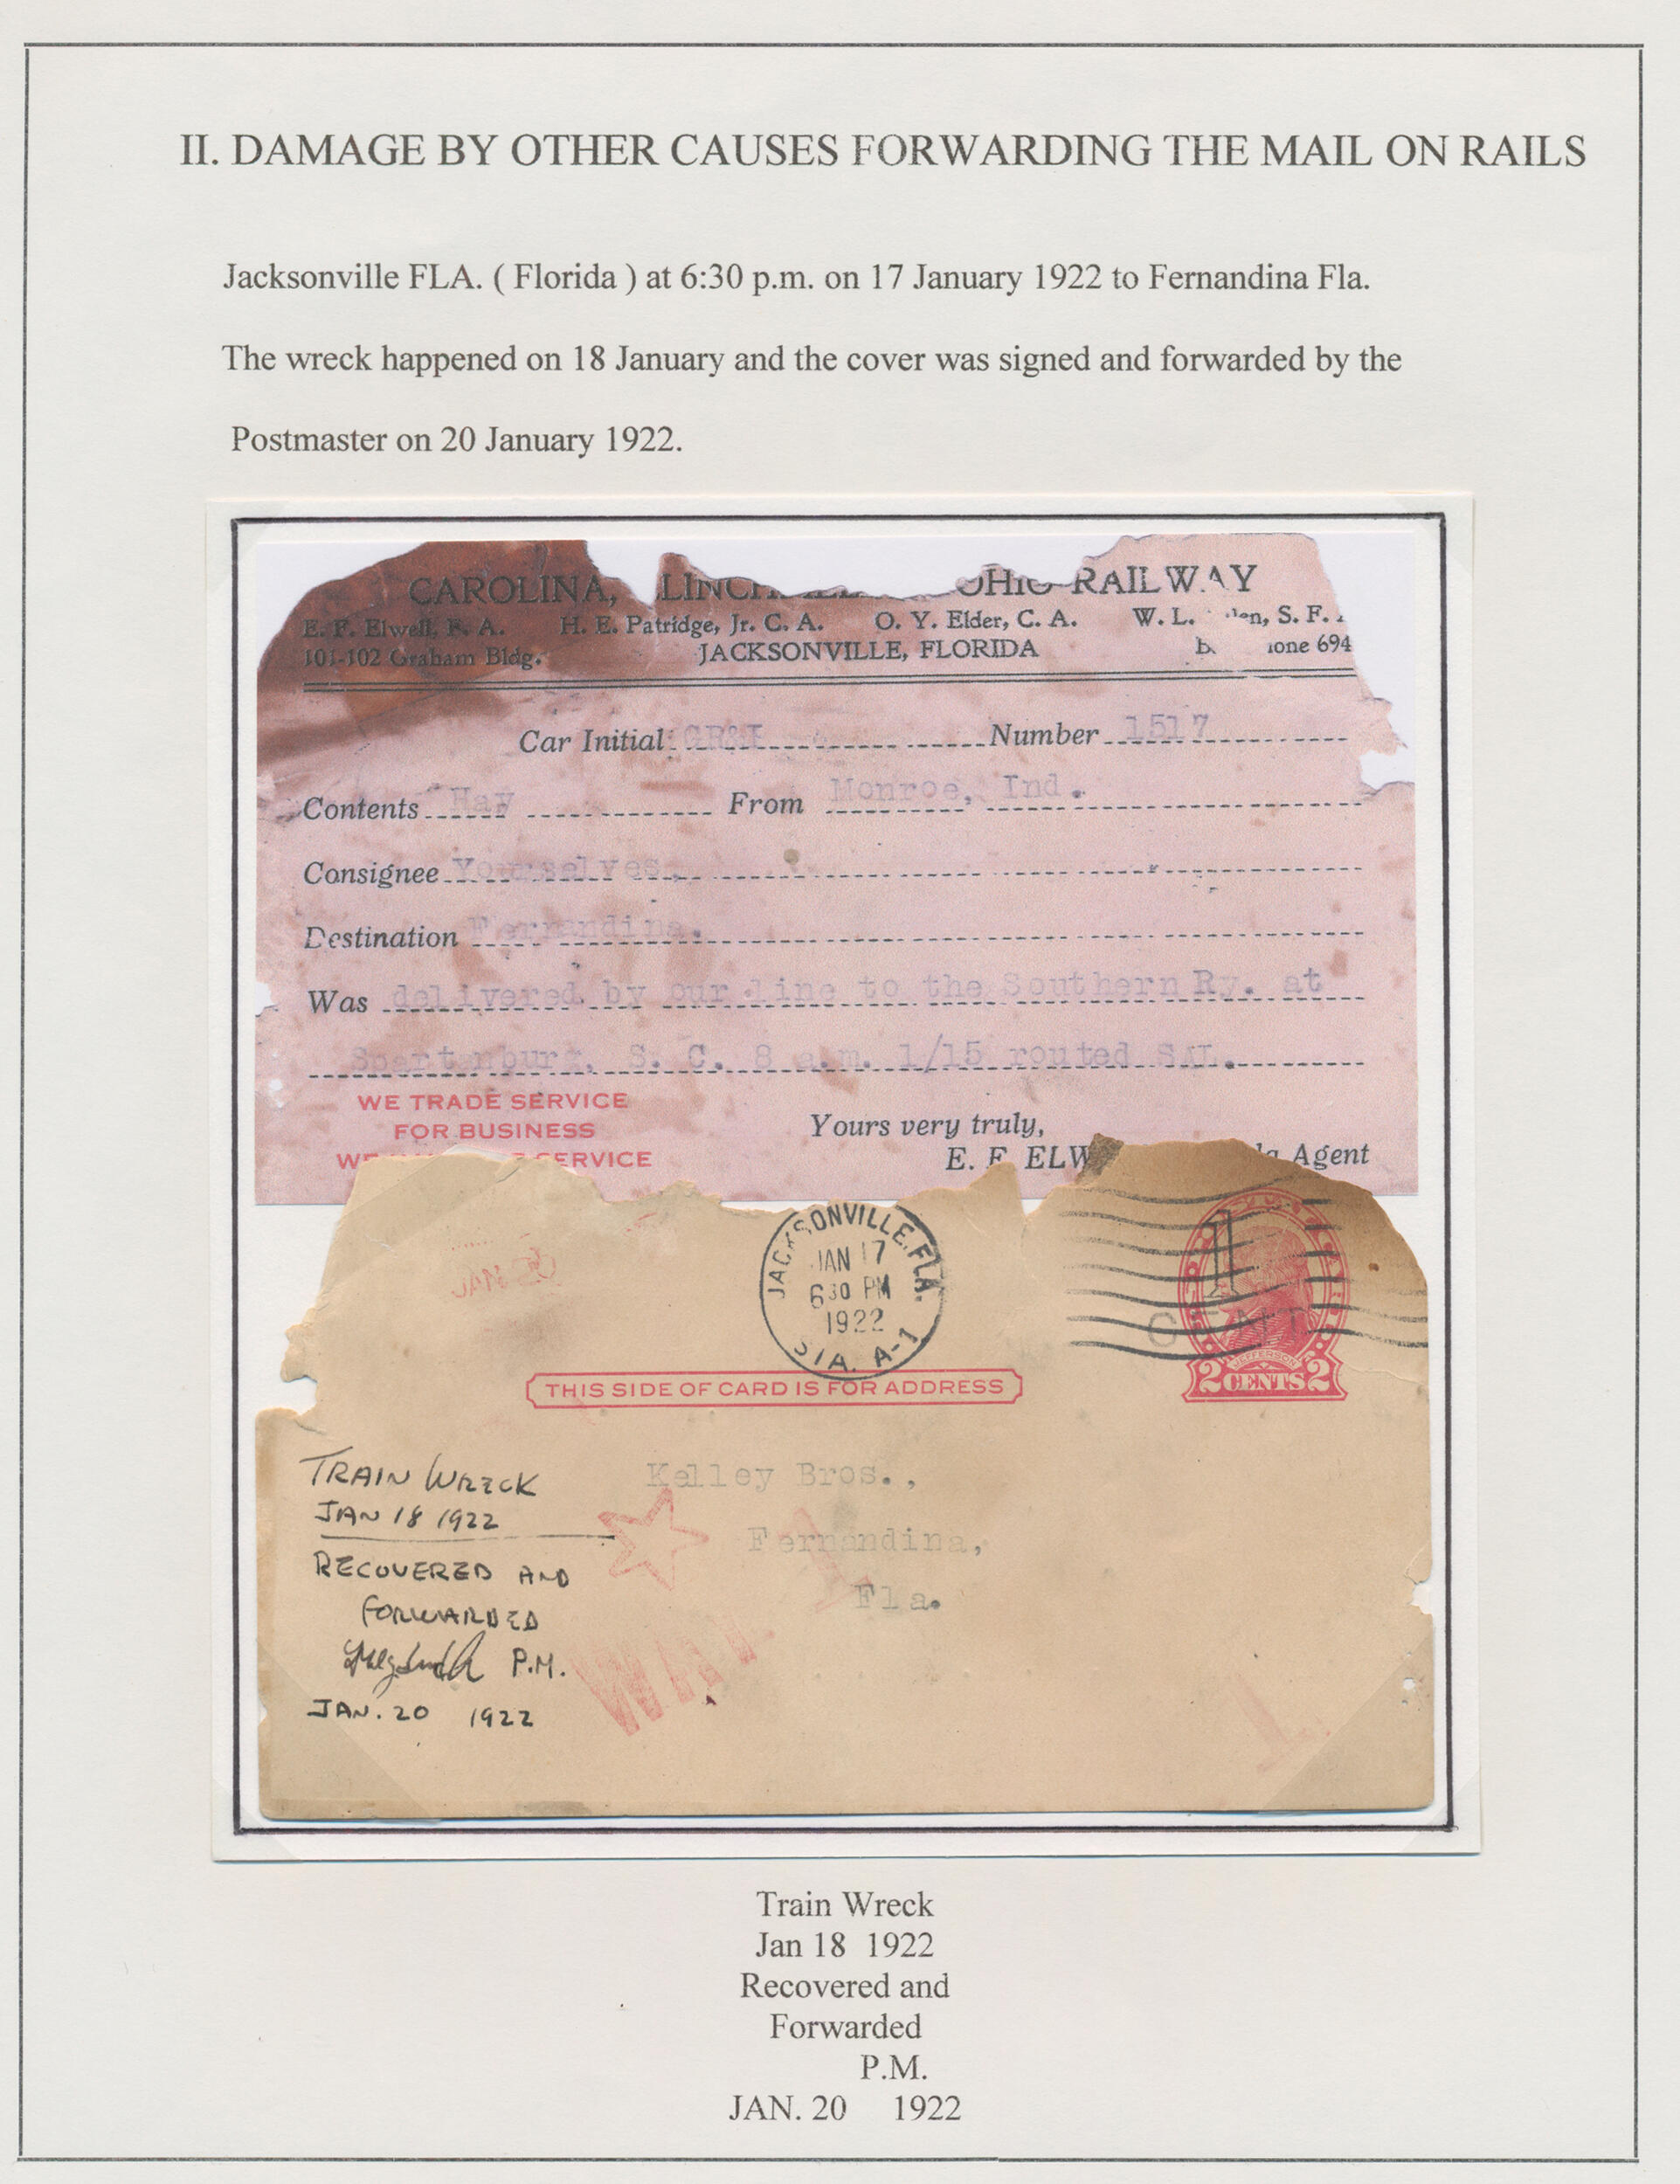 II. DAMAGE BY OTHER CAUSES FORWARDING THE MAIL ON RAILS
Jacksonville FLA. ( Florida ) at 6:30 p.m. on 17 January 1922 to Fernandina Fla.
The wreck happened on 18 January and the cover was signed and forwarded by the
Postmaster on 20 January 1922.
CAROLINA, OHIO RAILWAY
E. F. Elwell, F. A. H. E. Patridge, Jr. C. A. O. Y. Elder, C. A. W. L. S. F.
101-102 Graham Bldg. JACKSONVILLE, FLORIDA 694
Car Initial GR&I Number 1517
Contents Hay From Monroe, Ind.
Consignee Yourselves,
Destination Fernandina.
Was delivered by our line to the Southern Ry. at
Spartenburg, S. C. 8 a.m. 1/15 routed SAL.
WE TRADE SERVICE
FOR BUSINESS
WE SERVICE
Yours very truly,
E. F. ELW Agent
JACKSONVILLE, FLA.
JAN 17
6 30 PM
1922
STA. A-1
1
CENT
JEFFERSON
2 CENTS 2
THIS SIDE OF CARD IS FOR ADDRESS
Kelley Bros.,
Fernandina,
Fla.
TRAIN WRECK
JAN 18 1922
RECOVERED AND
FORWARDED
P.M.
JAN. 20 1922
Train Wreck
Jan 18 1922
Recovered and
Forwarded
P.M.
JAN. 20 1922